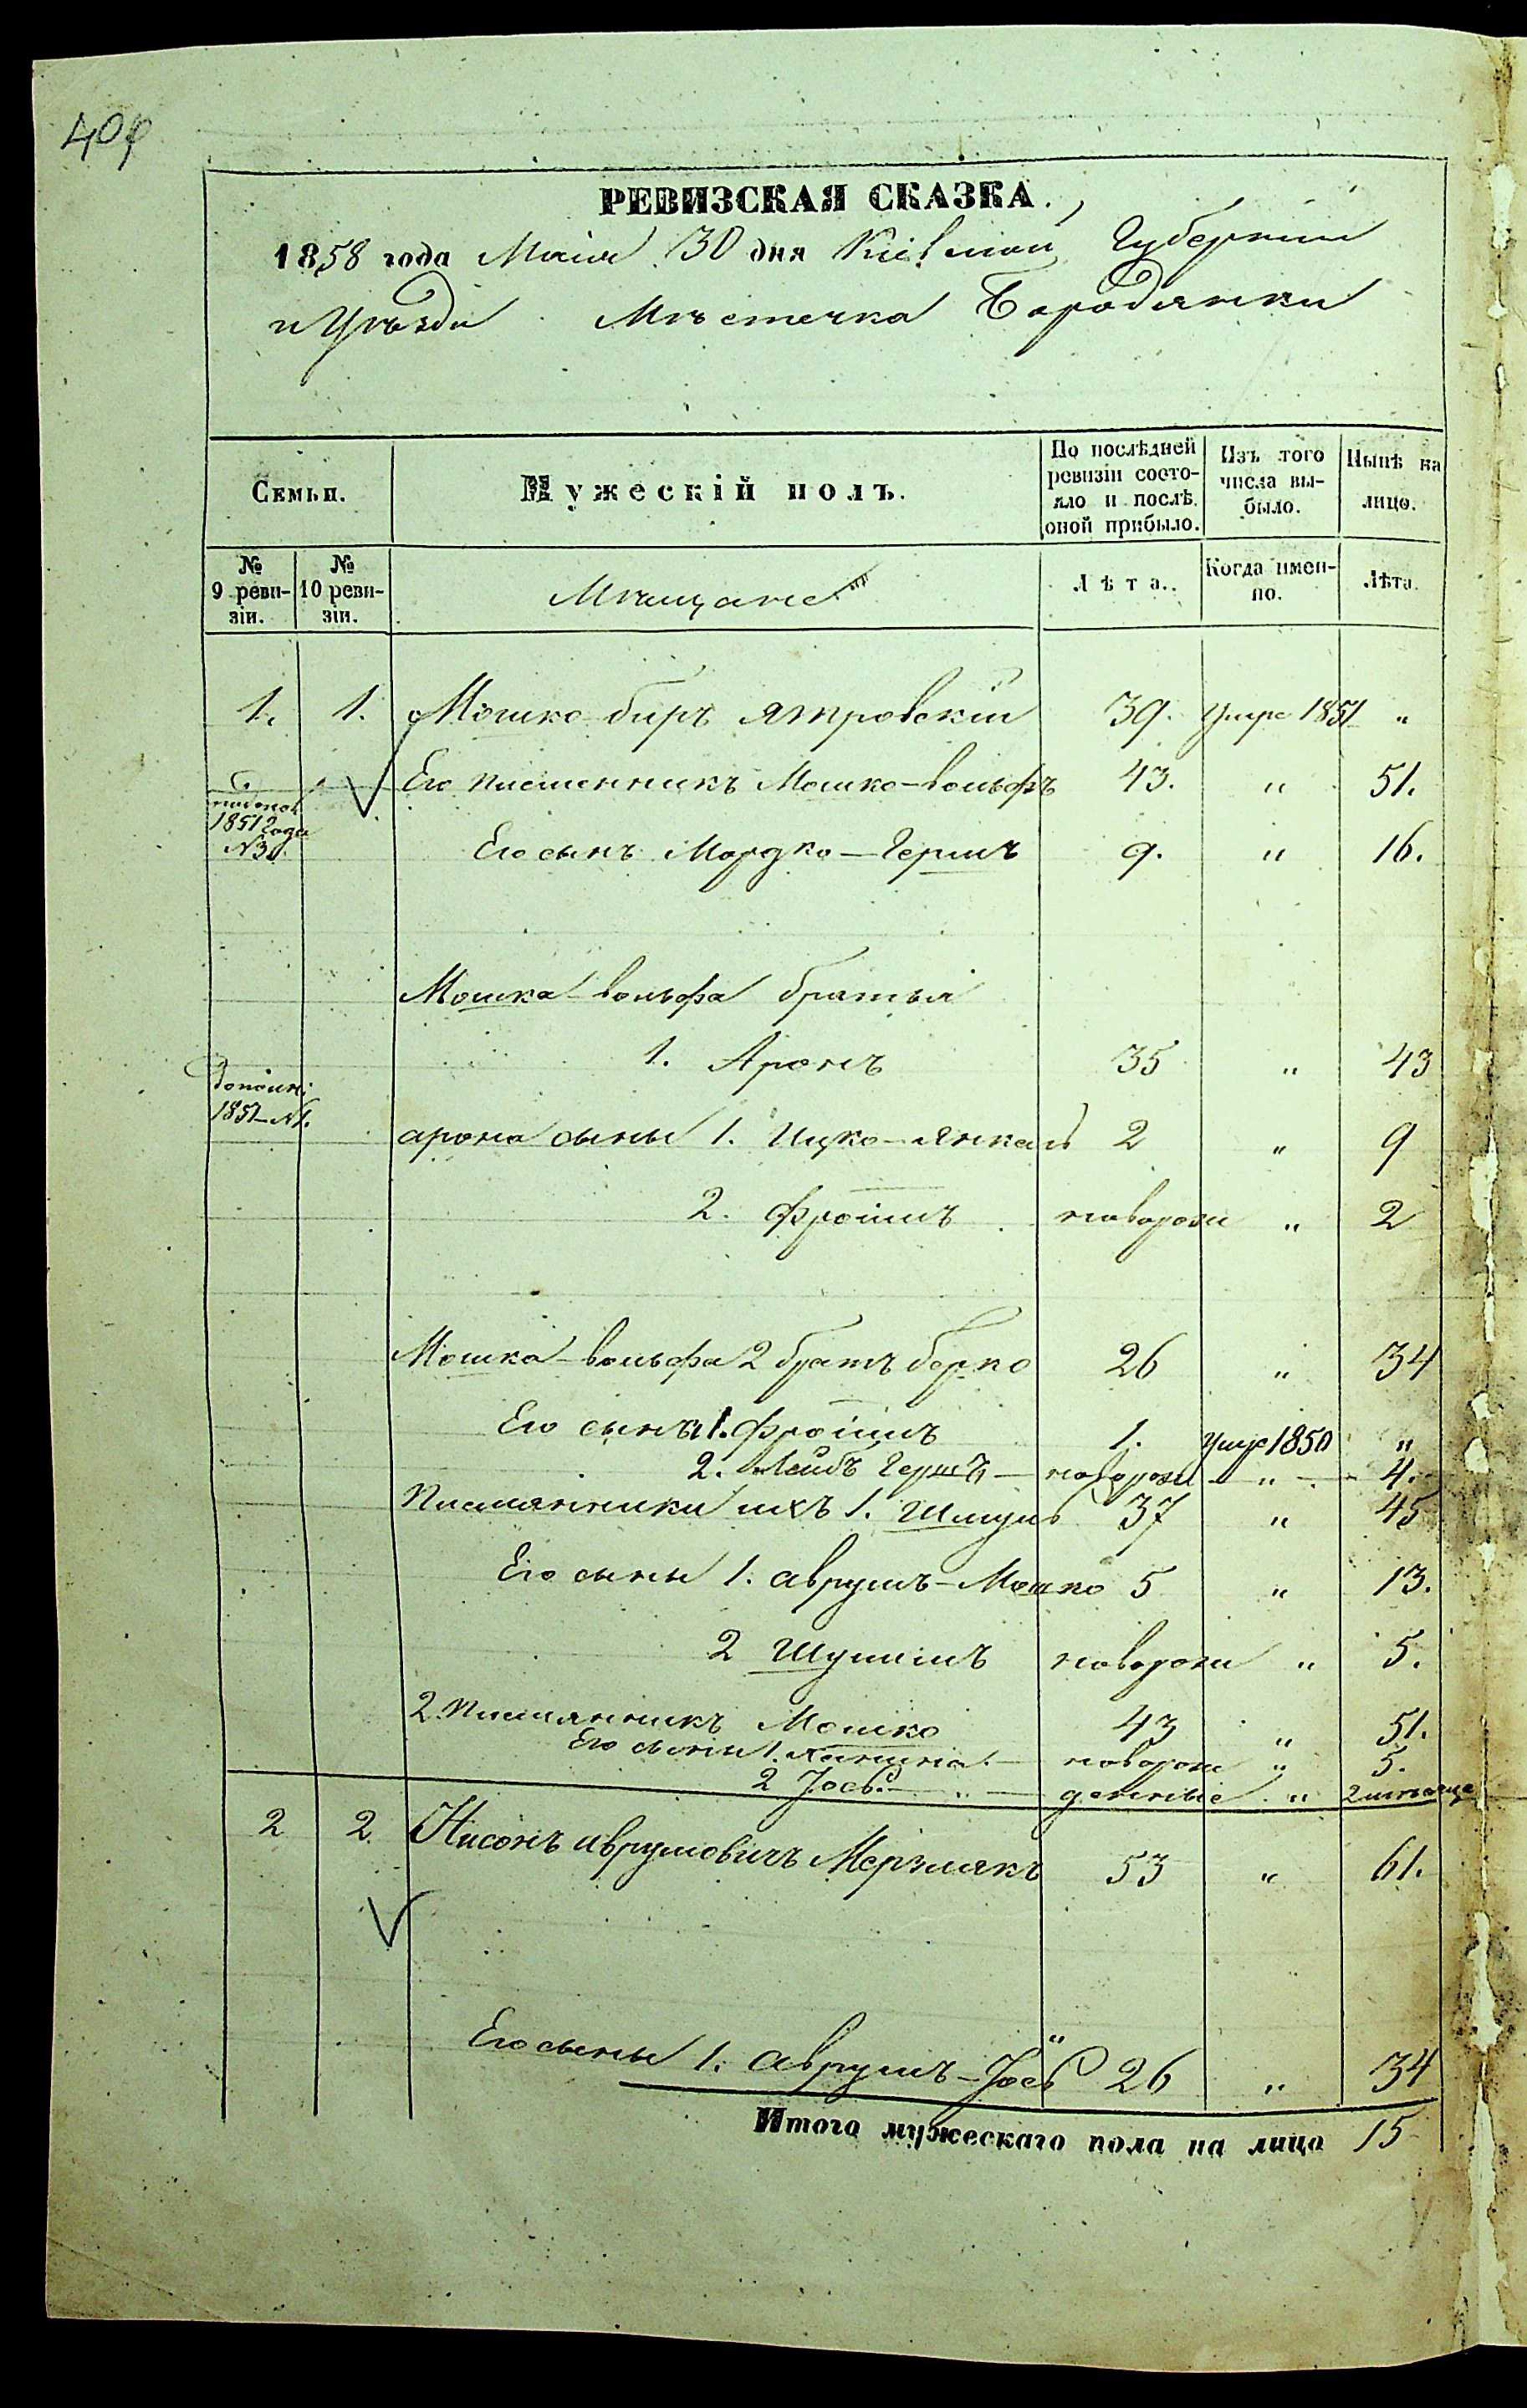 РЕВИЗСКАЯ СКАЗКА.
1858 года Маія 30 дня Кіевской Губерніи
и Уѣзда Мѣстечка Бородянки
Семьи. Мужескій полъ. По послѣдней ревизіи состояло и послѣ оной прибыло. Изъ того числа выбыло. Нынѣ на лицо.
№ 9 ревизіи. № 10 ревизіи. Мѣщане Лѣта. Когда именно. Лѣта.
1. 1. Мошко биръ Ятровскій 39. Умре 1851 "
Его племенникъ Мошко-вольфъ 43. " 51.
1851 года
Его сынъ Мордко-Гершъ 9. " 16.
Мошка-вольфа братья
1. Аронъ 35 " 43
1851 №1.
арона сыны 1. Ицко-янкель 2 " 9
2. Фроимъ новорож " 2
Мошка-вольфа 2 братъ берко 26 " 34
Его сыны 1. Фроимъ 1. Умре 1850 "
2. Лейбъ Гершъ - новорож - " - 4.
Племянники ихъ 1. Шмуль 37 " 45
Его сыны 1. аврумъ-Мошко 5 " 13.
2 Шулимъ новорож " 5.
2. Племянникъ Мошко 43 " 51.
Его сыны 1. новорож " 5.
2 Іось. - " -
2 2. Нисонъ аврумовичъ Мерзлякъ 53 " 61.
Его сыны 1. аврумъ-Іось 26 " 34
Итого мужескаго пола на лицо 15